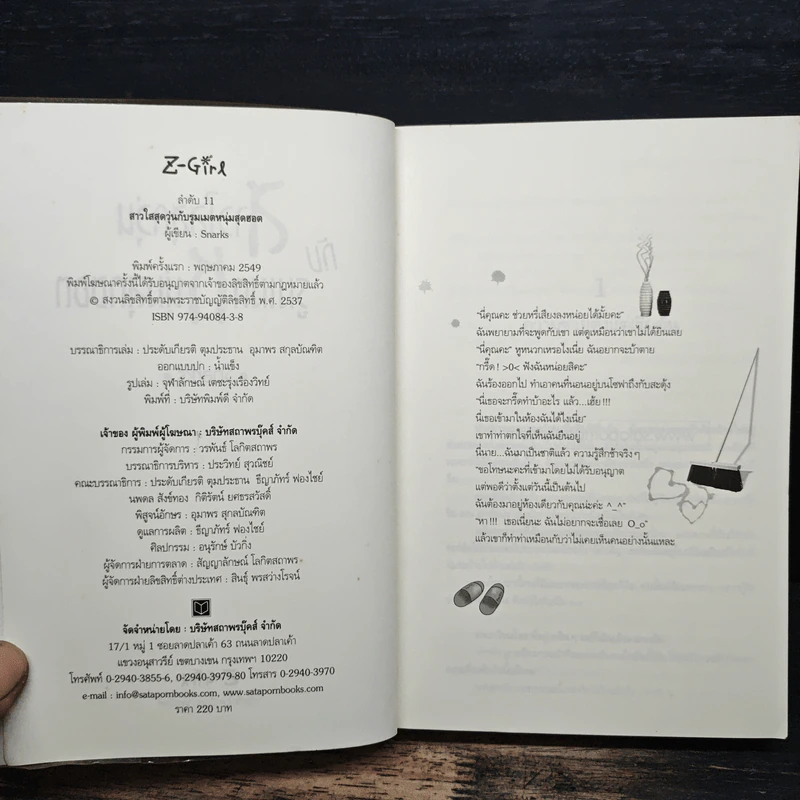 Z-Girl
ลำดับ 11
สาวใสสุดวุ่นกับรูมเมตหนุ่มสุดฮอต
ผู้เขียน : Snarks
พิมพ์ครั้งแรก : พฤษภาคม 2549
พิมพ์โฆษณาครั้งนี้ได้รับอนุญาตจากเจ้าของลิขสิทธิ์ตามกฎหมายแล้ว
© สงวนลิขสิทธิ์ตามพระราชบัญญัติลิขสิทธิ์ พ.ศ. 2537
ISBN 974-94084-3-8
บรรณาธิการเล่ม : ประดับเกียรติ ตุมประธาน อุมาพร สกุลบัณฑิต
ออกแบบปก : น้ำแข็ง
รูปเล่ม : จุฬาลักษณ์ เตชะรุ่งเรืองวิทย์
พิมพ์ที่ : บริษัทพิมพ์ดี จำกัด
เจ้าของ ผู้พิมพ์ผู้โฆษณา : บริษัทสถาพรบุ๊คส์ จำกัด
กรรมการผู้จัดการ : วรพันธ์ โลกิตสถาพร
บรรณาธิการบริหาร : ประวิทย์ สุวณิชย์
คณะบรรณาธิการ : ประดับเกียรติ ตุมประธาน ธีญาภัทร์ ฟองไชย์
นพดล สังข์ทอง กิติรัตน์ ยศธรสวัสดิ์
พิสูจน์อักษร : อุมาพร สกุลบัณฑิต
ดูแลการผลิต : ธีญาภัทร์ ฟองไชย์
ศิลปกรรม : อนุรักษ์ บัวกิ่ง
ผู้จัดการฝ่ายการตลาด : สัญญาลักษณ์ โลกิตสถาพร
ผู้จัดการฝ่ายลิขสิทธิ์ต่างประเทศ : สินธุ์ พรสว่างโรจน์
จัดจำหน่ายโดย : บริษัทสถาพรบุ๊คส์ จำกัด
17/1 หมู่ 1 ซอยลาดปลาเค้า 63 ถนนลาดปลาเค้า
แขวงอนุสาวรีย์ เขตบางเขน กรุงเทพฯ 10220
โทรศัพท์ 0-2940-3855-6, 0-2940-3979-80 โทรสาร 0-2940-3970
e-mail : info@satapornbooks.com, www.satapornbooks.com
ราคา 220 บาท
"นี่คุณคะ ช่วยหรี่เสียงลงหน่อยได้มั้ยคะ"
ฉันพยายามที่จะพูดกับเขา แต่ดูเหมือนว่าเขาไม่ได้ยินเลย
"นี่คุณคะ" หูหนวกเหรอไงเนี่ย ฉันอยากจะบ้าตาย
"กรี๊ด ! >0< ฟังฉันหน่อยสิคะ"
ฉันร้องออกไป ทำเอาคนที่นอนอยู่บนโซฟาถึงกับสะดุ้ง
"นี่เธอจะกรี๊ดทำบ้าอะไร แล้ว...เฮ้ย !!!
นี่เธอเข้ามาในห้องฉันได้ไงเนี่ย"
เขาทำท่าตกใจที่เห็นฉันยืนอยู่
นี่นาย...ฉันมาเป็นชาติแล้ว ความรู้สึกช้าจริงๆ
"ขอโทษนะคะที่เข้ามาโดยไม่ได้รับอนุญาต
แต่พอดีว่าตั้งแต่วันนี้เป็นต้นไป
ฉันต้องมาอยู่ห้องเดียวกับคุณน่ะค่ะ ^_^"
"หา !!! เธอเนี่ยนะ ฉันไม่อยากจะเชื่อเลย O_o"
แล้วเขาก็ทำท่าเหมือนกับว่าไม่เคยเห็นคนอย่างงั้นแหละ